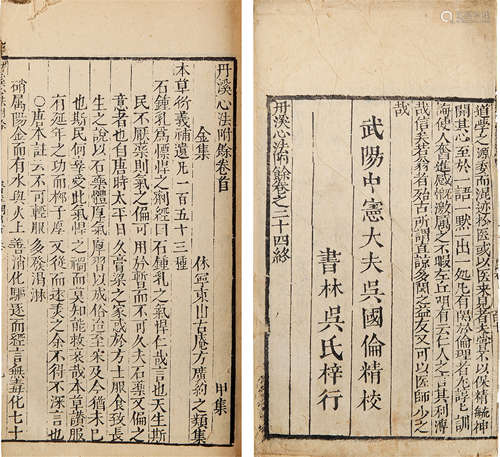 丹溪心法附餘卷首
金集 甲集
休寧東山古庵方廣約之類集
本草衍義補遺凡一百五十三種
石鍾乳爲慓悍之劑經曰石鍾乳之氣悍仁哉言也天生斯
民不厭藥則氣之偏可用於暫而不可久夫石藥又偏之
甚者也自唐時太平日久膏粱之家惑於方士服食致長
生之說以石藥體厚氣厚習以成俗迨至宋及今猶未已
也斯民何辜受此氣悍之禍而莫知能救哀哉本草讚服
有延年之功而柳子厚又從而述美之余不得不深言也
〇唐本註云不可輕服多發渴淋
硝屬陽金而有水與火土善消化驅逐而經言無毒化七十
道學之源委而混迹於醫或以來見者未嘗不以保精毓神
開其心至於一語一默一出一處凡有關於倫理者尤諄諄訓
誨使人奮迅感慨激厲之不暇左丘明有云仁人之言其利溥
哉信矣若翁者殆古所謂直諒多聞之益友又可以醫師少之
哉
武陽中憲大夫吳國倫精校
書林吳氏梓行
丹溪心法附餘卷之二十四終